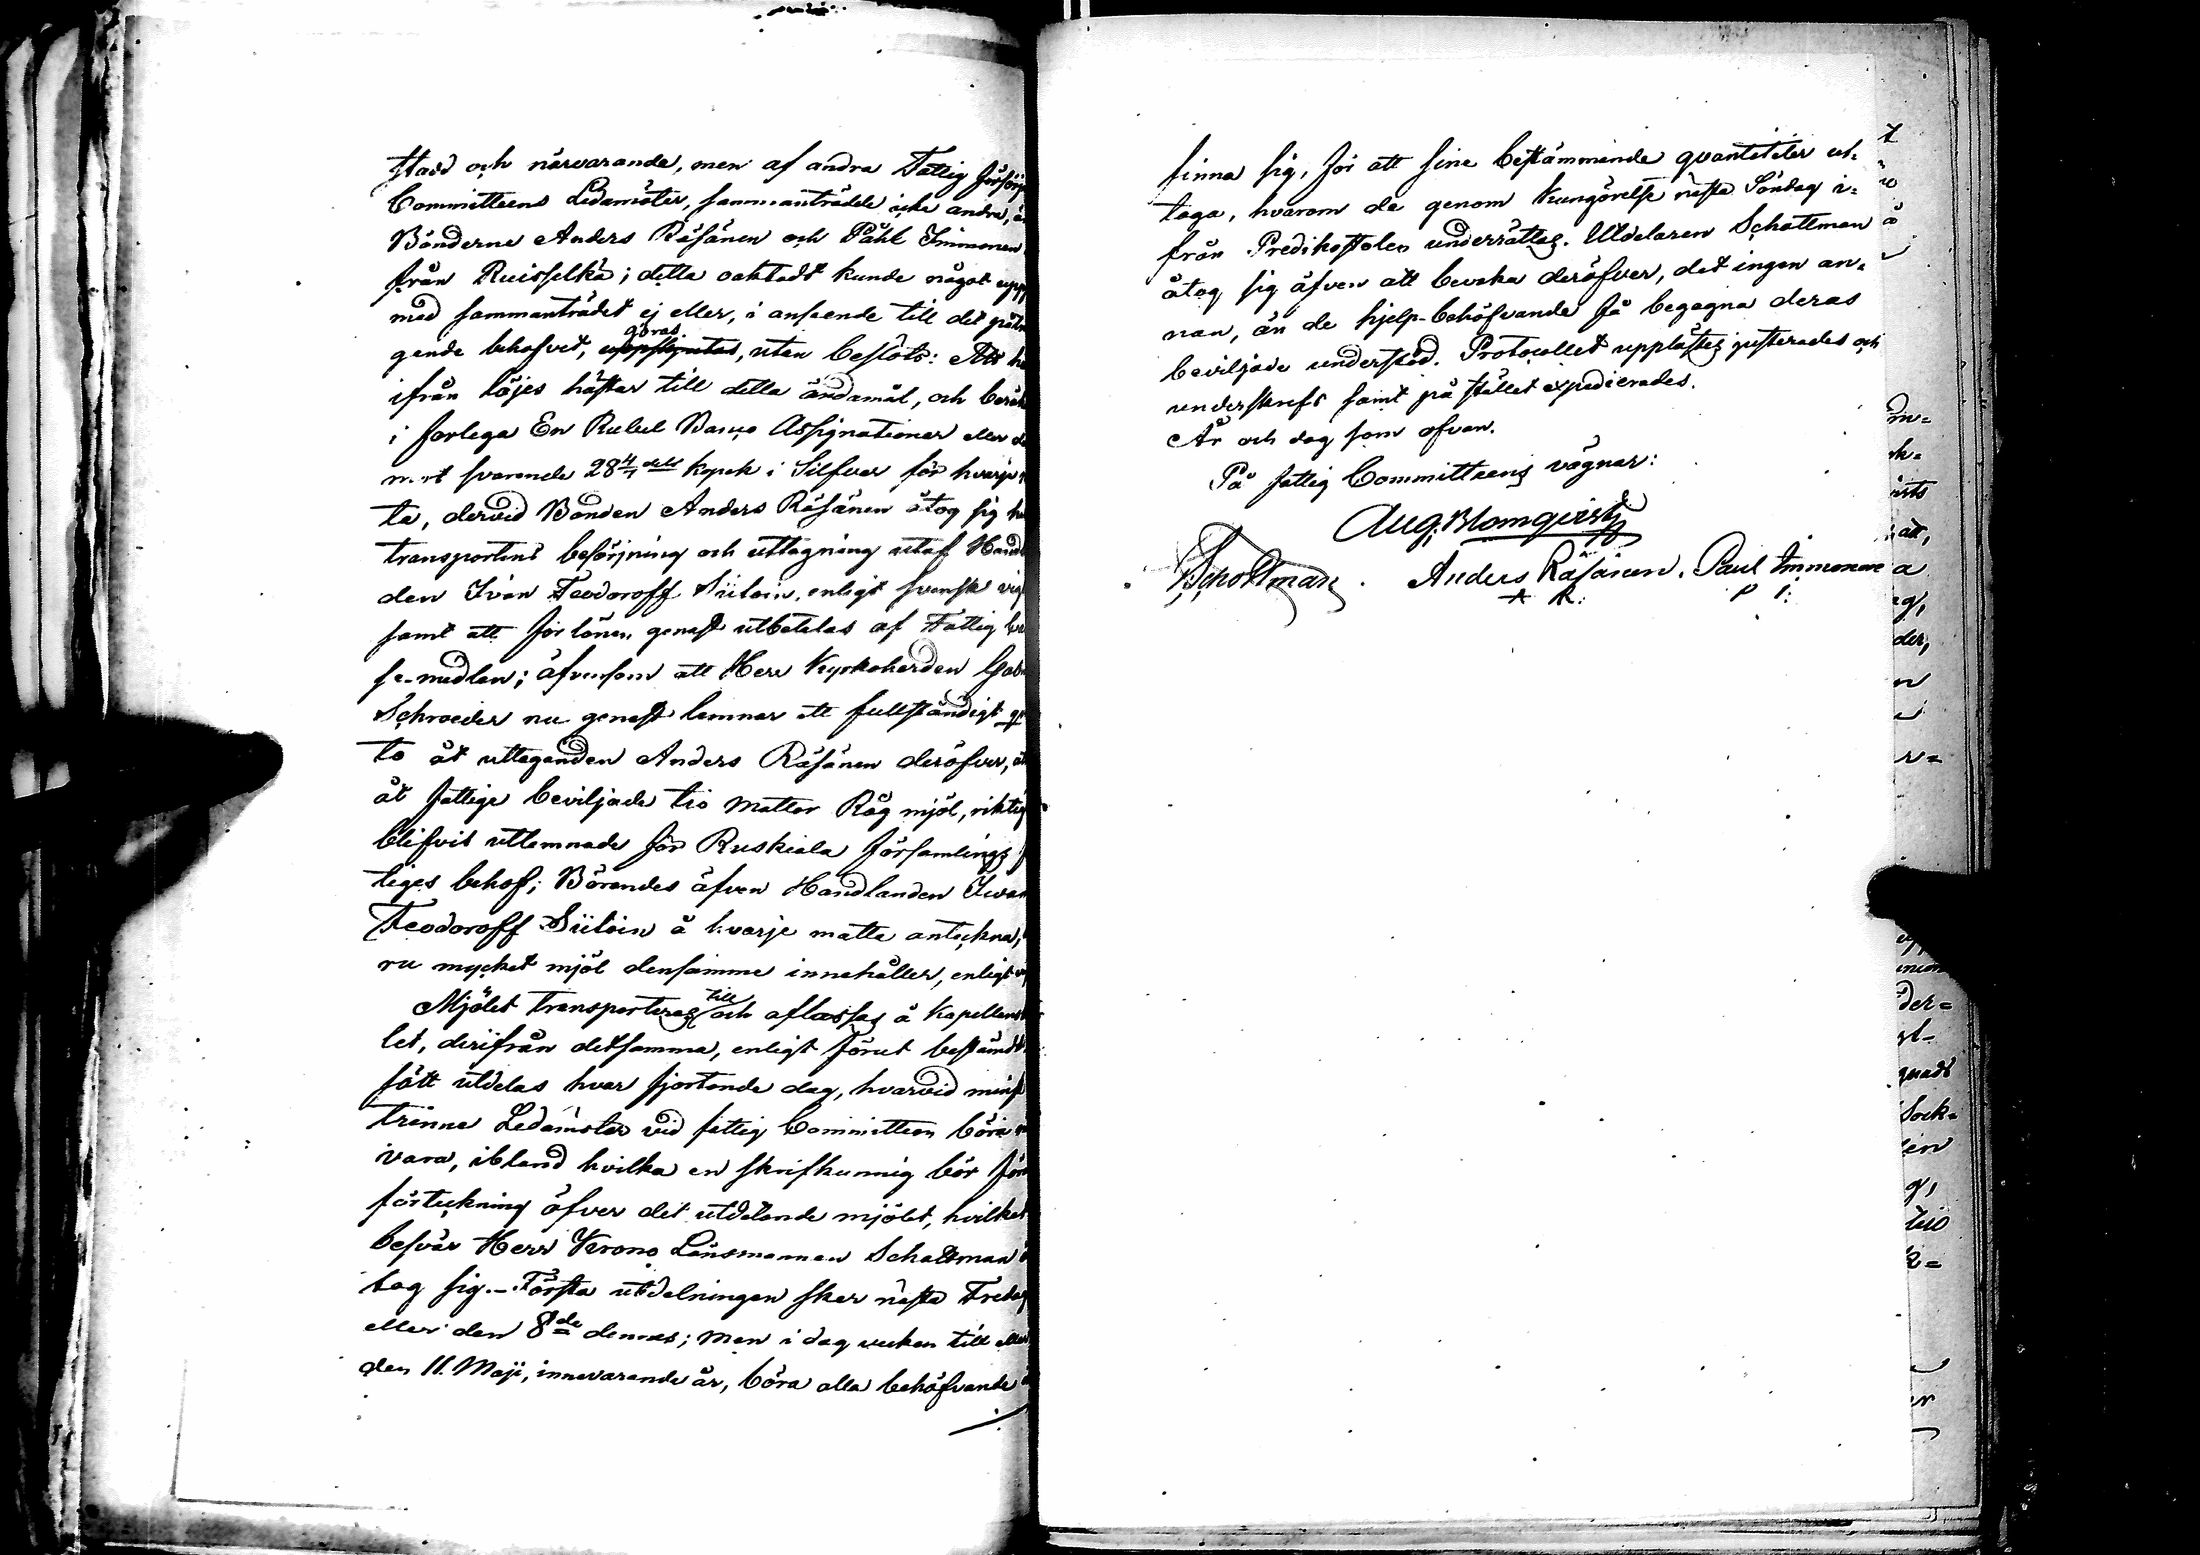 stadd och närvarande, men af andra Fattig försörj
Committeens Ledamöter, sammanträdde icke andra, än
Bönderne Anders Räsänen och Påhl Immonen
från Ruisselkä; detta oaktadt kunde något upp
med sammanträdet ej eller, i anseende till det
gande behofvet, uppskjutas göras, utan beslöts: Att
ifrån löjes hästar till detta ändamål, och
i forlega En Rubel Banco Assignationer eller
mot svarende 28 4/7 dels kopek i Silfver för hvarje
ta, dervid Bonden Anders Räsänen åtog sig
transportens besörjning och uttagning utaf Hand
den Ivan Feodoroff Siitoin, enligt svensk vig
samt att förlönen genast utbetalas af Fattig
se-medlen; äfvensom att Herr Kyrkoherden Gab
Schroeder nu genast lemnar ett fullständigt q
to åt uttaganden Anders Räsänen deröfver, at
åt fattige beviljade tio mattor Råg mjöl, riktig
blifvit utlemnade för Ruskiala församlings
tiges behof; Börandes äfven Handlanden Iwan
Feodoroff Siitoin å hvarje matta anteckna,
ru mycket mjöl densamme innehåller, enligt
Mjölet transporteras till och aflassas å Kapellans
let, derifrån detsamma, enligt förut bestämdt
sätt utdelas hvar fjortonde dag, hvarvid minst
trenne Ledamöter vid fattig Committeen böra
vara, ibland hvilka en skrifkunnig bör för
förteckning öfver det utdelande mjölet, hvilket
besvär Herr Krono Länsmannen Schottman å
tog sig. - Första utdelningen sker nästa Fredag
eller den 8de dennes; men i dag veckan till eller
den 11. Maji, innevarande år, böra alla behöfvande
finna sig, för att sine bestämmende qvantiteter ut-
taga, hvarom de genom Kungörelse nästa Söndag i-
från Predikostolen underrättas. Utdelaren Schottman
åtog sig äfven att bevaka deröfver, det ingen an-
nan, än de hjelp-behöfvande få begagna deras
beviljade understöd. Protocollet upplästes justerades och
underskrefs samt på stället expedierades.
År och dag som ofvan.
På fattig Committeens vägnar:
Aug. Blomqvist
Schottman. Anders Räsänen. Paul Immonen
A R: P I: